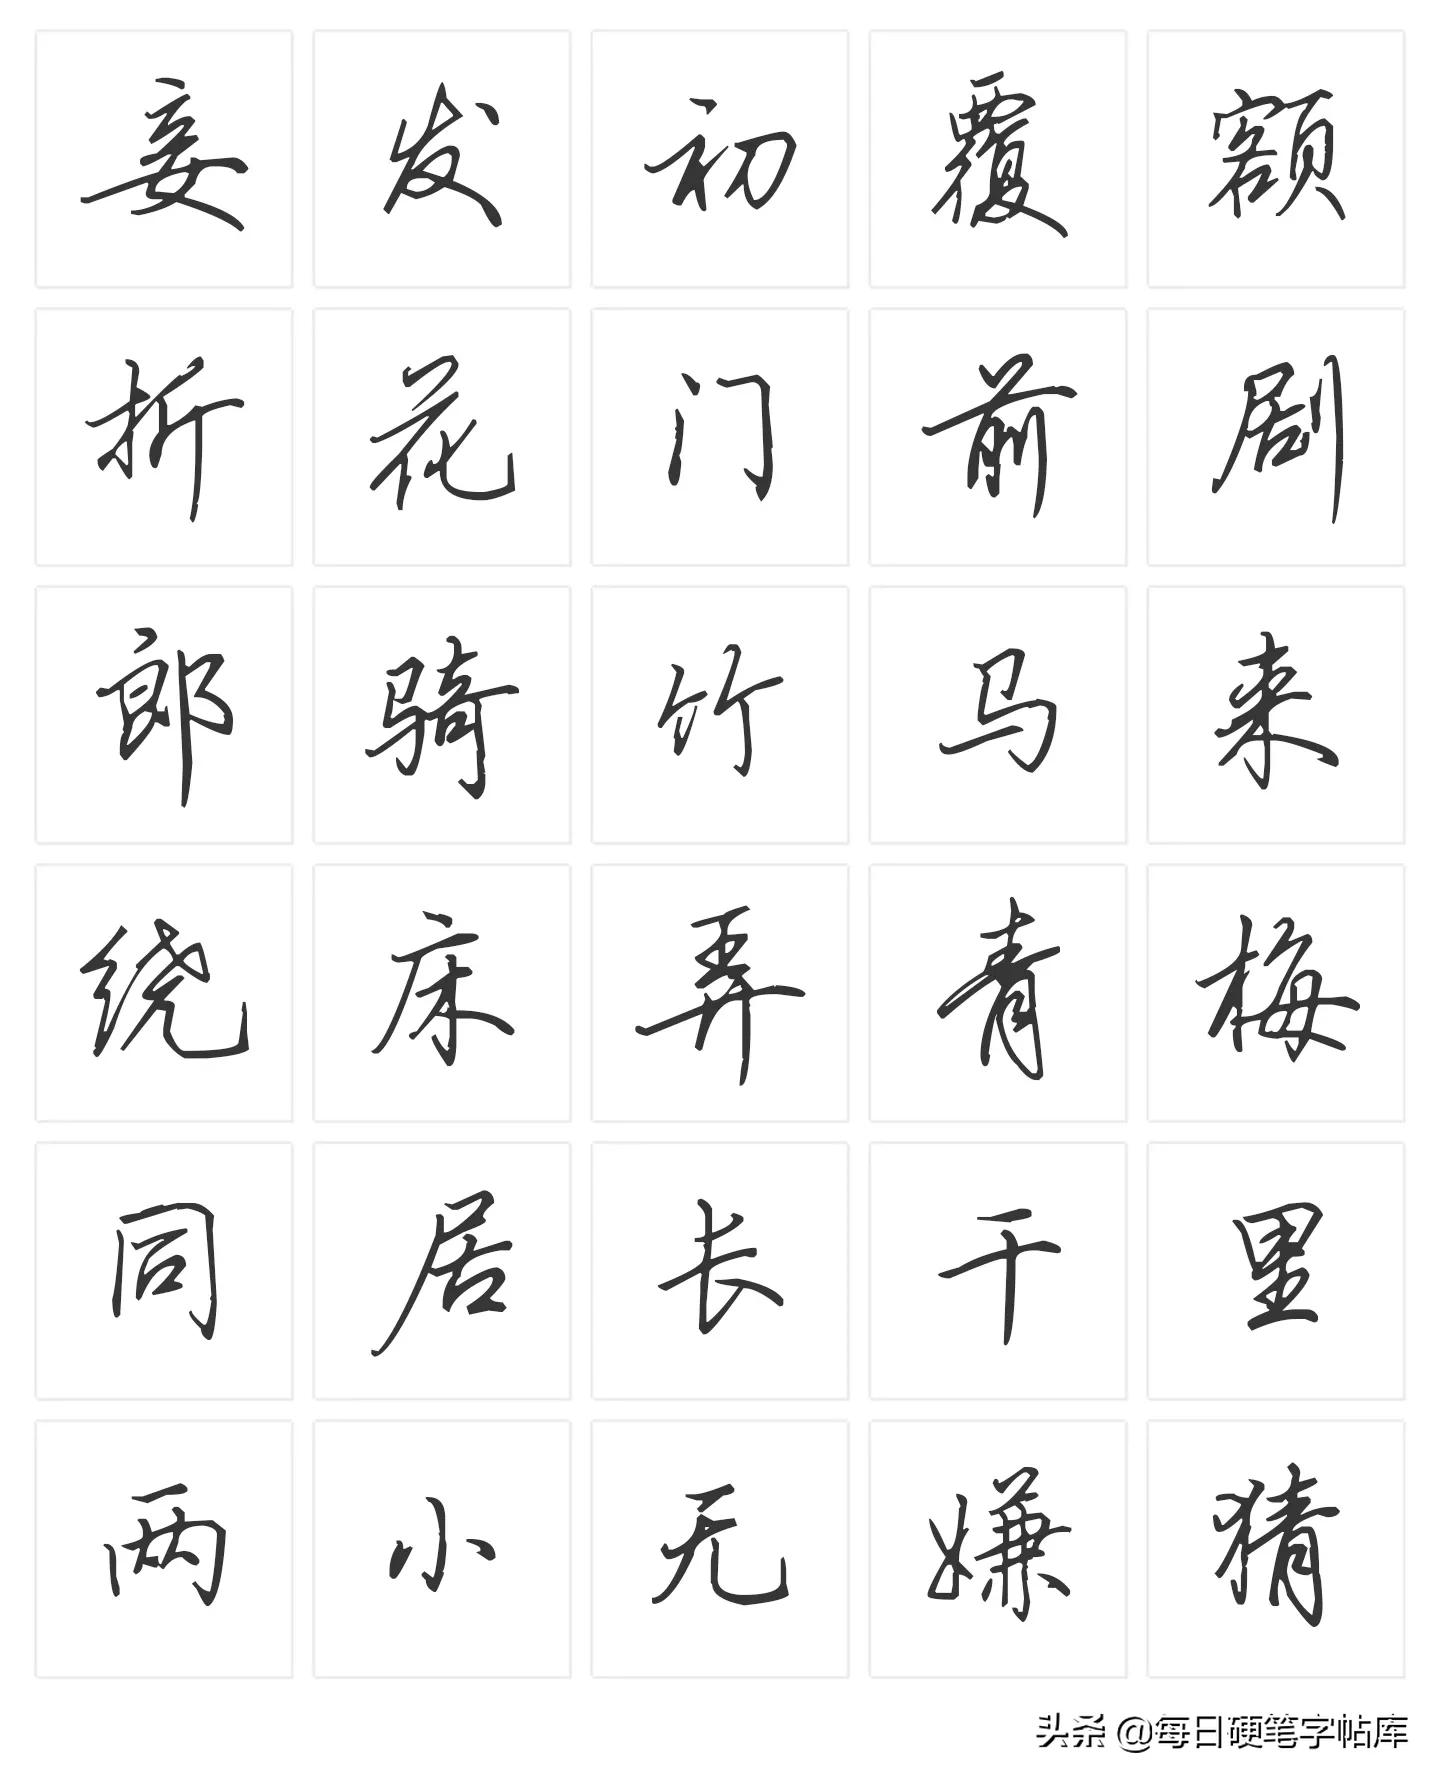 妾发初覆额
折花门前剧
郎骑竹马来
绕床弄青梅
同居长干里
两小无嫌猜
头条 @每日硬笔字帖库